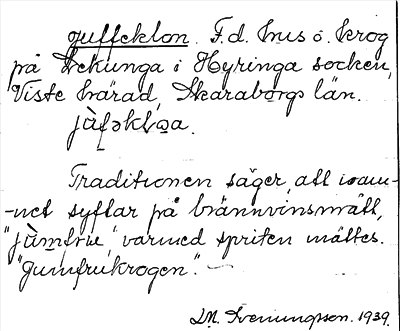 Juffeklon. F.d. hus o. krog
på Stekunga i Hyringa socken,
Viste härad, Skaraborgs län.
jùfəkloa.
Traditionen säger, att nam-
-net syftar på brännvinsmått,
"jùmfru", varmed spriten mättes.
"Jumfrukrogen". —
Svenungsson. 1939.